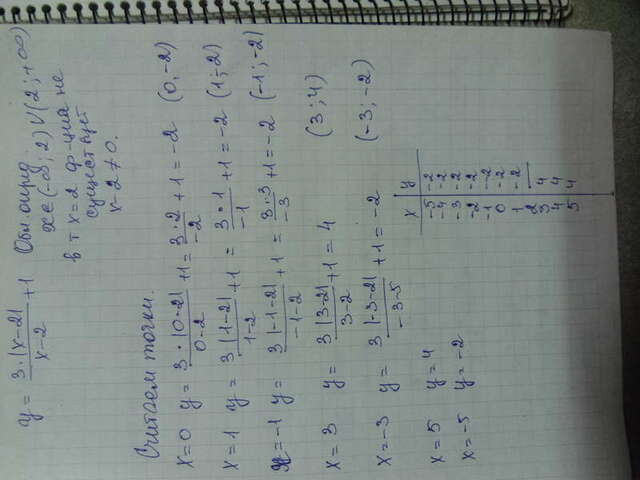 y = 3·|x-2| / x-2 + 1 Обл. опред.
x∈(-∞; 2)∪(2; +∞)
в т x=2 ф-ция не
существует
x-2≠0.
Считаем точки.
x=0 y = 3·|0-2| / 0-2 + 1 = 3·2 / -2 + 1 = -2 (0; -2)
x=1 y = 3|1-2| / 1-2 + 1 = 3·1 / -1 + 1 = -2 (1; -2)
x=-1 y = 3|-1-2| / -1-2 + 1 = 3·3 / -3 + 1 = -2 (-1; -2)
x=3 y = 3|3-2| / 3-2 + 1 = 4 (3; 4)
x=-3 y = 3|-3-2| / -3-5 + 1 = -2 (-3; -2)
x=5 y=4
x=-5 y=-2
x y
-5 -2
-4 -2
-3 -2
-2 -2
-1 -2
0 -2
1 -2
2 —
3 4
4 4
5 4